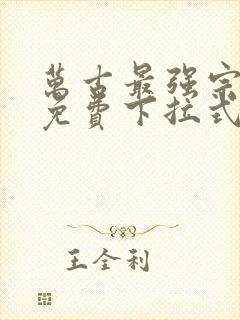 萬古最强宗
免費下拉式
王全利